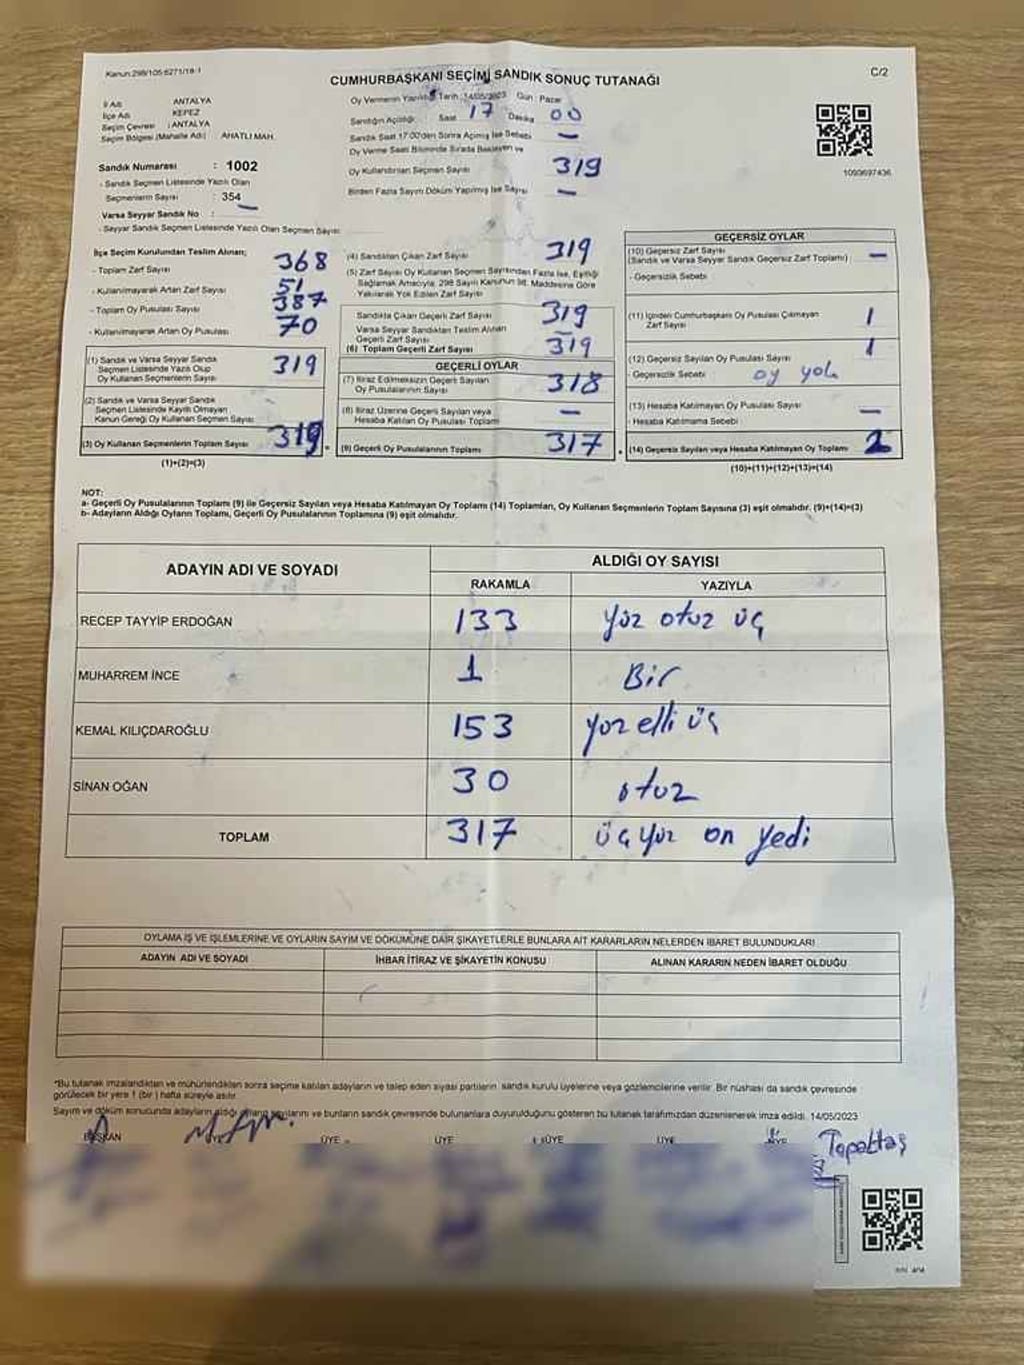 Kanun:298/105-6271/18-1
CUMHURBAŞKANI SEÇİMİ SANDIK SONUÇ TUTANAĞI
C/2
İl Adı ANTALYA
İlçe Adı KEPEZ
Seçim Çevresi : ANTALYA
Seçim Bölgesi (Mahalle Adı) : AHATLI MAH.
Sandık Numarası : 1002
- Sandık Seçmen Listesinde Yazılı Olan
Seçmenlerin Sayısı : 354
Varsa Seyyar Sandık No : —
- Seyyar Sandık Seçmen Listesinde Yazılı Olan Seçmen Sayısı
Oy Vermenin Yapıldığı Tarih :14/05/2023 Gün : Pazar
Sandığın Açıldığı: Saat 17 Dakika 00
Sandık Saat 17:00'den Sonra Açılmış İse Sebebi —
Oy Verme Saati Bitiminde Sırada Bekleyen ve
Oy Kullandırılan Seçmen Sayısı 319
Birden Fazla Sayım Döküm Yapılmış İse Sayısı —
1093697436
İlçe Seçim Kurulundan Teslim Alınan;
- Toplam Zarf Sayısı 368
- Kullanılmayarak Artan Zarf Sayısı 51
- Toplam Oy Pusulası Sayısı 387
- Kullanılmayarak Artan Oy Pusulası 70
(1) Sandık ve Varsa Seyyar Sandık
Seçmen Listesinde Yazılı Olup
Oy Kullanan Seçmenlerin Sayısı 319
(2) Sandık ve Varsa Seyyar Sandık
Seçmen Listesinde Kayıtlı Olmayan
Kanun Gereği Oy Kullanan Seçmen Sayısı
(3) Oy Kullanan Seçmenlerin Toplam Sayısı 319
(1)+(2)=(3)
(4) Sandıktan Çıkan Zarf Sayısı 319
(5) Zarf Sayısı Oy Kullanan Seçmen Sayısından Fazla İse, Eşitliği
Sağlamak Amacıyla, 298 Sayılı Kanunun 98. Maddesine Göre
Yakılarak Yok Edilen Zarf Sayısı
Sandıkta Çıkan Geçerli Zarf Sayısı 319
Varsa Seyyar Sandıktan Teslim Alınan
Geçerli Zarf Sayısı —
(6) Toplam Geçerli Zarf Sayısı 319
GEÇERLİ OYLAR
(7) İtiraz Edilmeksizin Geçerli Sayılan
Oy Pusulalarının Sayısı 318
(8) İtiraz Üzerine Geçerli Sayılan veya
Hesaba Katılan Oy Pusulaları Toplamı —
(9) Geçerli Oy Pusulalarının Toplamı 317
GEÇERSİZ OYLAR
(10) Geçersiz Zarf Sayısı
(Sandık ve Varsa Seyyar Sandık Geçersiz Zarf Toplamı) —
- Geçersizlik Sebebi
(11) İçinden Cumhurbaşkanı Oy Pusulası Çıkmayan
Zarf Sayısı 1
(12) Geçersiz Sayılan Oy Pusulası Sayısı 1
- Geçersizlik Sebebi : oy yok
(13) Hesaba Katılmayan Oy Pusulası Sayısı —
- Hesaba Katılmama Sebebi
(14) Geçersiz Sayılan veya Hesaba Katılmayan Oy Toplamı 2
(10)+(11)+(12)+(13)=(14)
NOT:
a- Geçerli Oy Pusulalarının Toplamı (9) ile Geçersiz Sayılan veya Hesaba Katılmayan Oy Toplamı (14) Toplamları, Oy Kullanan Seçmenlerin Toplam Sayısına (3) eşit olmalıdır. (9)+(14)=(3)
b- Adayların Aldığı Oyların Toplamı, Geçerli Oy Pusulalarının Toplamına (9) eşit olmalıdır.
ADAYIN ADI VE SOYADI ALDIĞI OY SAYISI
RAKAMLA YAZIYLA
RECEP TAYYİP ERDOĞAN 133 yüz otuz üç
MUHARREM İNCE 1 Bir
KEMAL KILIÇDAROĞLU 153 yüz elli üç
SİNAN OĞAN 30 otuz
TOPLAM 317 üçyüz on yedi
OYLAMA İŞ VE İŞLEMLERİNE VE OYLARIN SAYIM VE DÖKÜMÜNE DAİR ŞİKAYETLERLE BUNLARA AİT KARARLARIN NELERDEN İBARET BULUNDUKLARI
ADAYIN ADI VE SOYADI İHBAR İTİRAZ VE ŞİKAYETİN KONUSU ALINAN KARARIN NEDEN İBARET OLDUĞU
*Bu tutanak imzalandıktan ve mühürlendikten sonra seçime katılan adayların ve talep eden siyasi partilerin, sandık kurulu üyelerine veya gözlemcilerine verilir. Bir nüshası da sandık çevresinde
görülecek bir yere 1 (bir) hafta süreyle asılır.
Sayım ve döküm sonucunda adayların aldığı oyların sayılarını ve bunların sandık çevresinde bulunanlara duyurulduğunu gösteren bu tutanak tarafımızdan düzenlenerek imza edildi. 14/05/2023
BAŞKAN ÜYE ÜYE ÜYE ÜYE
Topaktaş